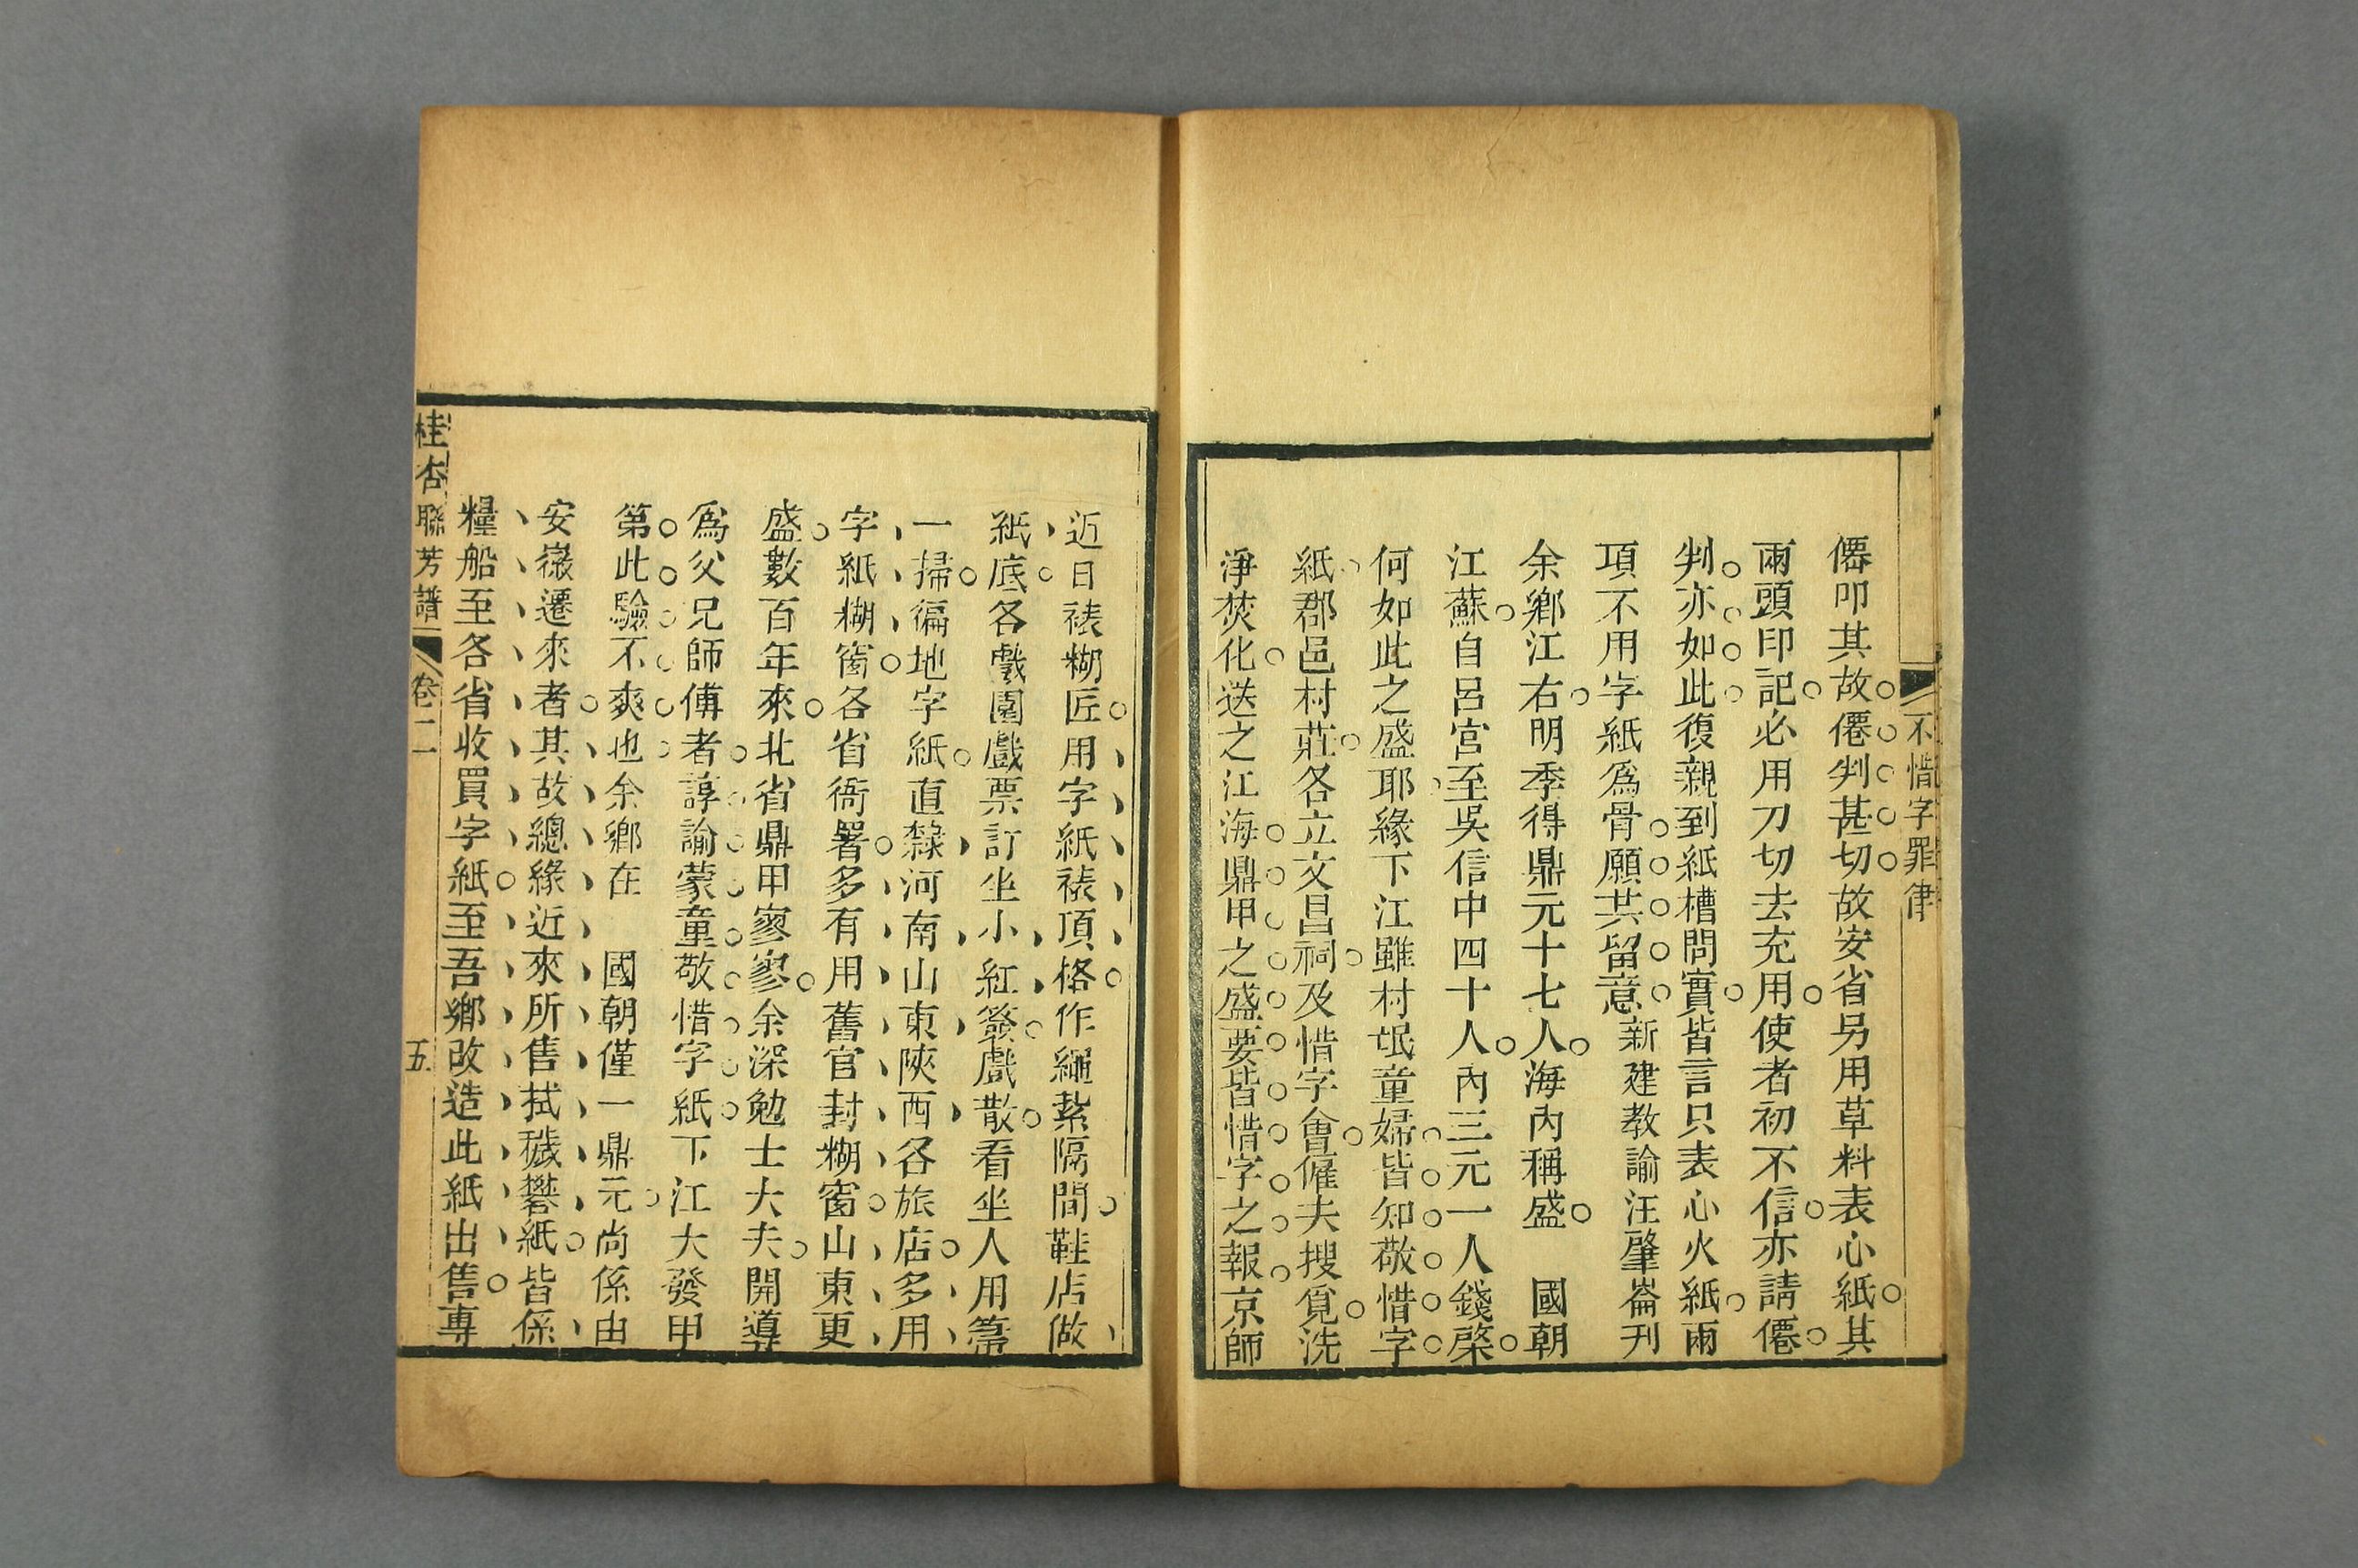 不惜字罪律
僊叩其故僊判甚切故安省另用草料表心紙其
兩頭印記必用刀切去充用使者初不信亦請僊
判亦如此復親到紙槽問實皆言只表心火紙兩
項不用字紙爲骨願共留意新建教諭汪肇崙刊
余鄉江右明季得鼎元十七人海內稱盛 國朝
江蘇自呂宮至吳信中四十人內三元一人錢棨
何如此之盛耶緣下江雖村氓童婦皆知敬惜字
紙郡邑村莊各立文昌祠及惜字會僱夫搜覓洗
淨焚化送之江海鼎甲之盛要皆惜字之報京師
近日裱糊匠用字紙裱頂格作繩紮隔間鞋店做
紙底各戲園戲票訂坐小紅簽戲散看坐人用箒
一掃徧地字紙直隸河南山東陝西各旅店多用
字紙糊窗各省衙署多有用舊官封糊窗山東更
盛數百年來北省鼎甲寥寥余深勉士大夫開導
爲父兄師傅者諄諭蒙童敬惜字紙下江大發甲
第此驗不爽也余鄉在 國朝僅一鼎元尚係由
安徽遷來者其故總緣近來所售拭穢礬紙皆係
糧船至各省收買字紙至吾鄉改造此紙出售專
桂杏聯芳譜 卷二 五